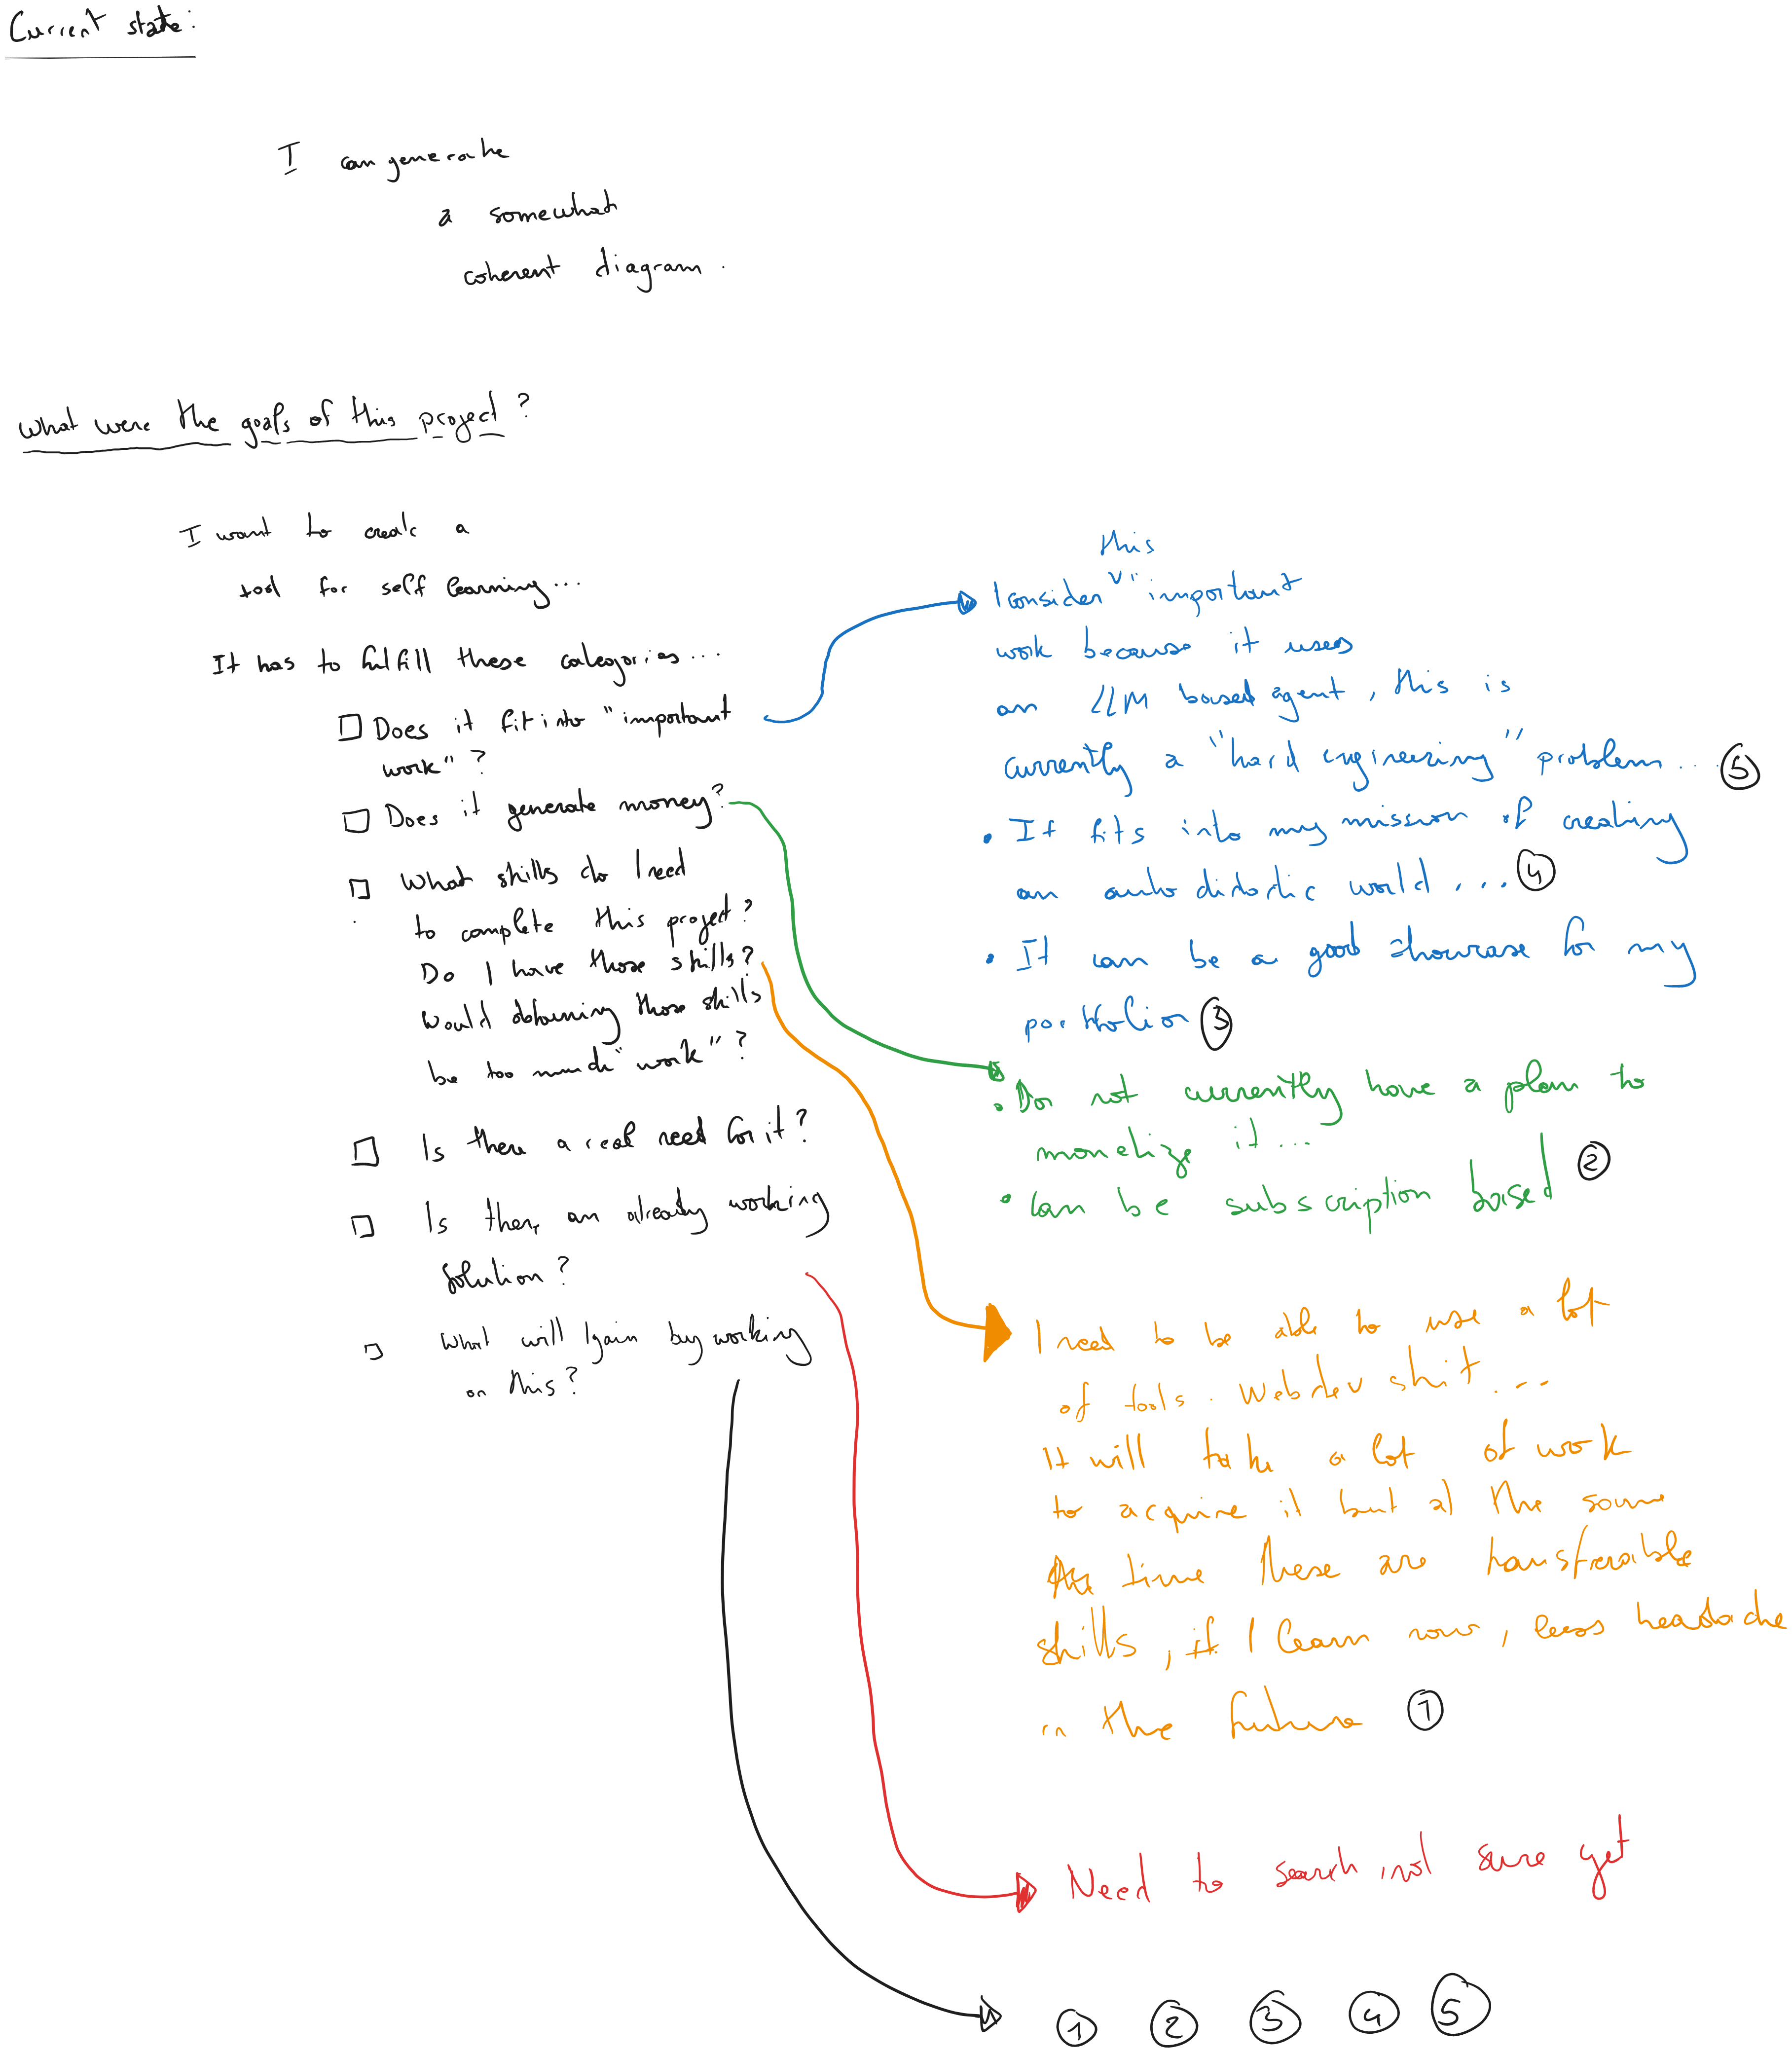 Current state:
I can generate
a somewhat
coherent diagram.
What were the goals of this project?
I want to create a
tool for self learning...
It has to fulfill these categories...
Does it fit into "important
work"?
Does it generate money?
What skills do I need
to complete this project?
Do I have those skills?
Would obtaining those skills
be too much "work"?
Is there a real need for it?
Is there an already working
solution?
What will I gain by working
on this?
this
I consider v "important
work because it uses
an LLM based agent, this is
currently a "hard engineering" problem... 5
• It fits into my mission of creating
an autodidactic world.... 4
• It can be a good showcase for my
portfolio 3
• Do not currently have a plan to
monetize it...
• Can be subscription based 2
I need to be able to use a lot
of tools. Webdev shit...
It will take a lot of work
to acquire it but at the same
time these are transferable
skills, if I learn now, less headache
in the future 1
Need to search, not sure yet
1 2 3 4 5